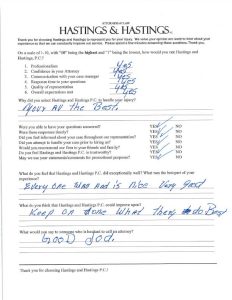 ATTORNEYS AT LAW
HASTINGS & HASTINGS P.C.
Thank you for choosing Hastings and Hastings to represent you for your injury. We value your opinion and want to know about your
experiences so that we can constantly improve our service. Please spend a few minutes answering these questions. Thank you.
On a scale of 1-10, with "10" being the highest and "1" being the lowest, how would you rate Hastings and
Hastings, P.C.?
1. Professionalism yes
2. Confidence in your Attorney yes
3. Communication with your case manager yes
4. Response time to your questions yes
5. Quality of representation yes
6. Overall expectations met yes
Why did you select Hastings and Hastings P.C. to handle your injury?
your All the Best.
Were you able to have your questions answered? YES NO
Were those responses timely? YES NO
Did you feel informed about your case throughout our representation? YES NO
Did you attempt to handle your case prior to hiring us? YES NO
Would you recommend our firm to your friends and family? YES NO
Do you feel Hastings and Hastings P.C. is trustworthy? YES NO
May we use your statements/comments for promotional purposes? YES NO
What do you feel that Hastings and Hastings P.C. did exceptionally well? What was the best part of your
experience?
Every one was and is Nice Very Good
What do you think that Hastings and Hastings P.C. could improve upon?
Keep on done What They do Best
What would you say to someone who is hesitant to call an attorney?
GOOD Job.
Thank you for choosing Hastings and Hastings P.C.!